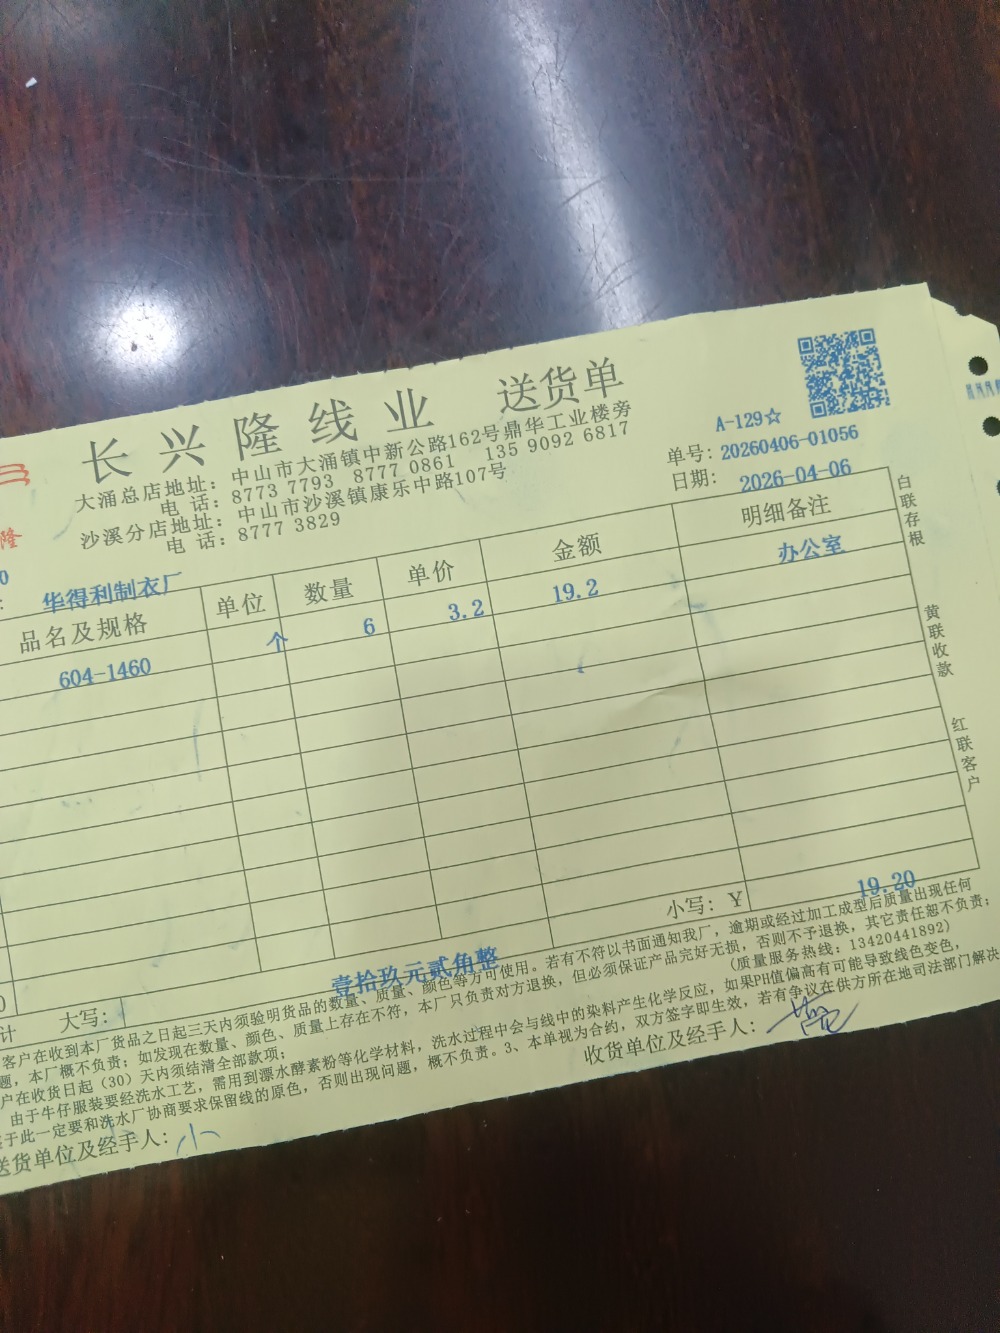 长兴隆线业 送货单
大涌总店地址：中山市大涌镇中新公路162号鼎华工业楼旁
电 话：8773 7793 8777 0861 135 9092 6817
沙溪分店地址：中山市沙溪镇康乐中路107号
电 话：8777 3829
A-129☆
单号：20260406-01056
日期：2026-04-06
隆
0
：华得利制衣厂
品名及规格 单位 数量 单价 金额 明细备注
604-1460 个 6 3.2 19.2 办公室
白联存根
黄联收款
红联客户
小写：Y 19.20
计 大写：壹拾玖元贰角整
客户在收到本厂货品之日起三天内须验明货品的数量、质量、颜色等方可使用。若有不符以书面通知我厂，逾期或经过加工成型后质量出现任何
题，本厂概不负责；如发现在数量、颜色、质量上存在不符，本厂只负责对方退换，但必须保证产品完好无损，否则不予退换，其它责任恕不负责；
户在收货日起（30）天内须结清全部款项； （质量服务热线：13420441892）
由于牛仔服装要经洗水工艺，需用到漂水酵素粉等化学材料，洗水过程中会与线中的染料产生化学反应，如果PH值偏高有可能导致线色变色，
于此一定要和洗水厂协商要求保留线的原色，否则出现问题，概不负责。3、本单视为合约，双方签字即生效，若有争议在供方所在地司法部门解决
送货单位及经手人：小
收货单位及经手人：